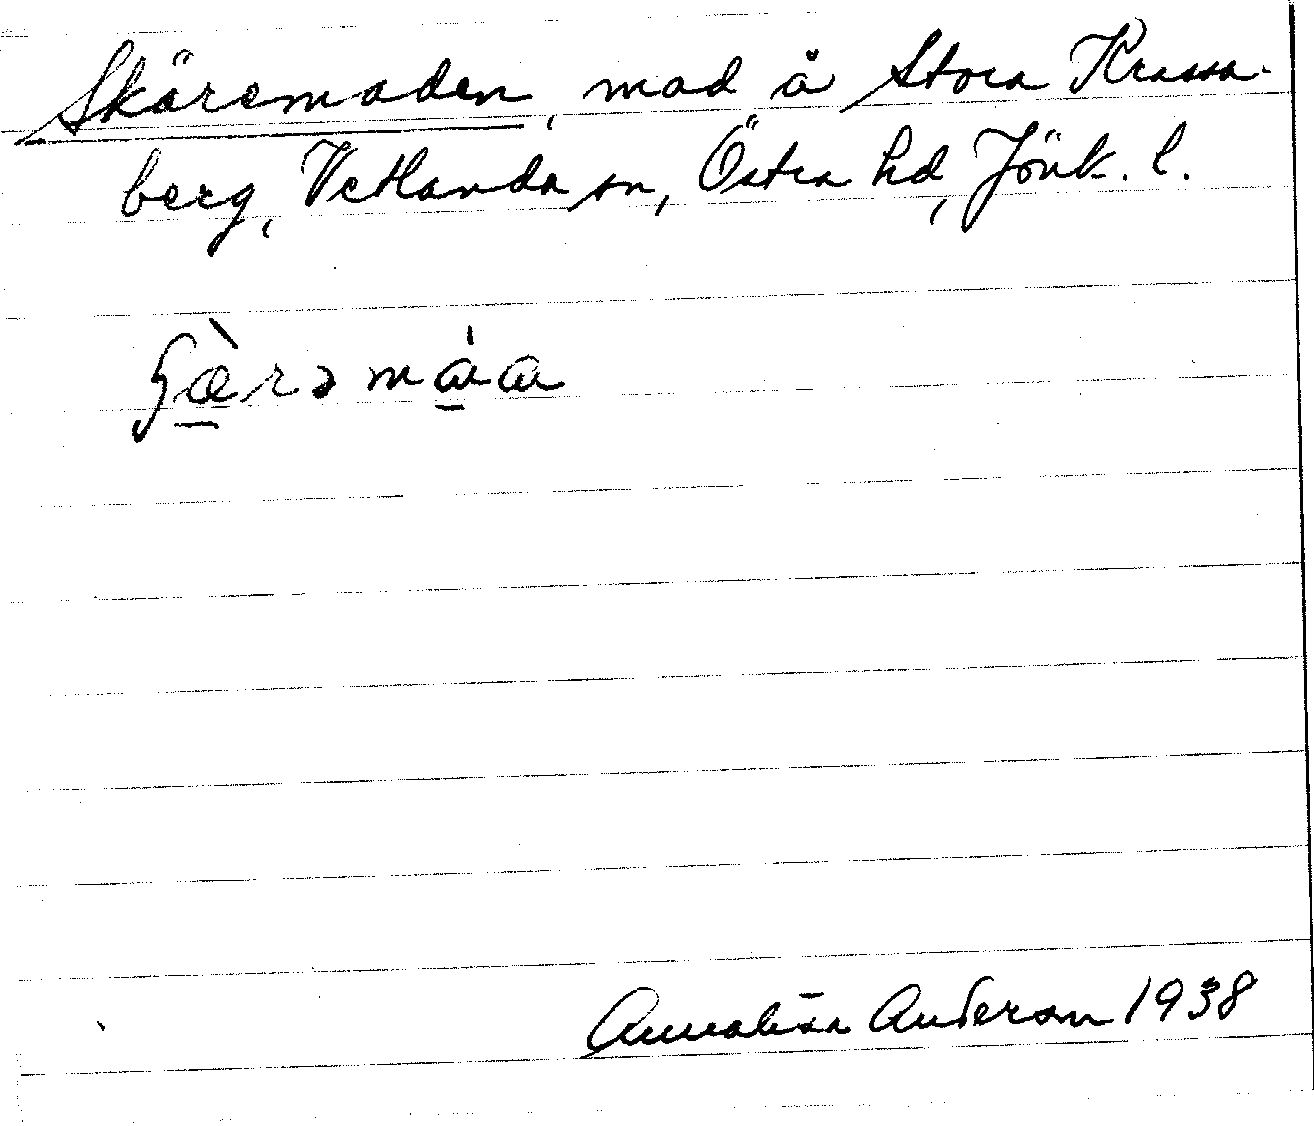 Skäremaden, mad å Stora Krassa-
berg, Vetlanda sn, Östra hd, Jönk. l.
ʃæ̠̀rəmȧ̠a
Annalisa Anderson 1938